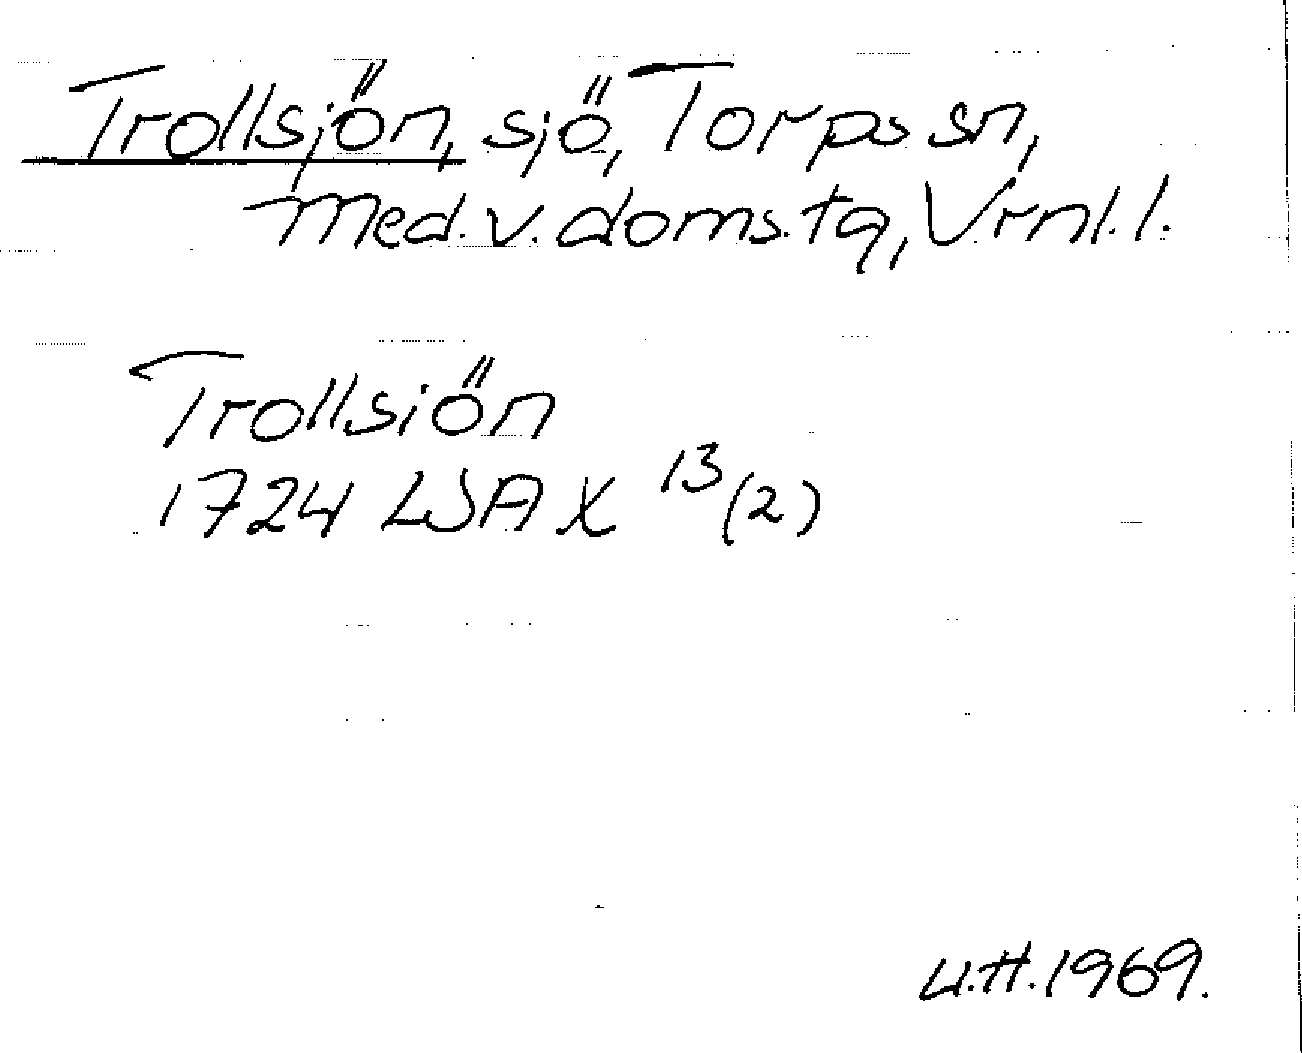 Trollsjön, sjö, Torps sn,
Med. v. doms. tg, Vrnl. l.
Trollsiön
1724 LSA X 13 (2)
U.H. 1969.